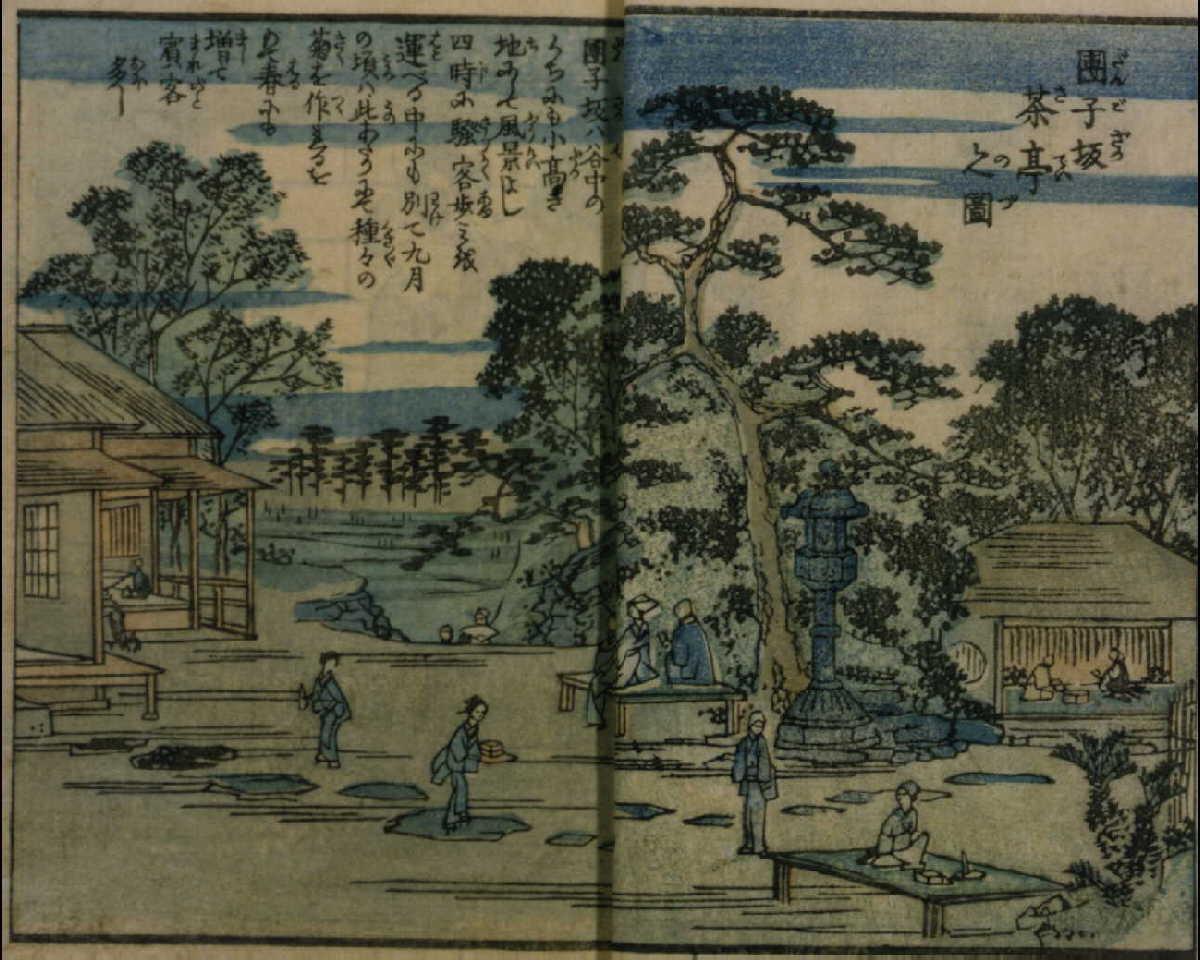 團子坂
茶亭
之圖
團子坂ハ谷中の
うちにも小高き
地にて風景よし
四時に騒客歩ミを
運べる中にも別て九月
の頃ハ此あたりにて種々の
菊を作るを
増て
賓客
多し